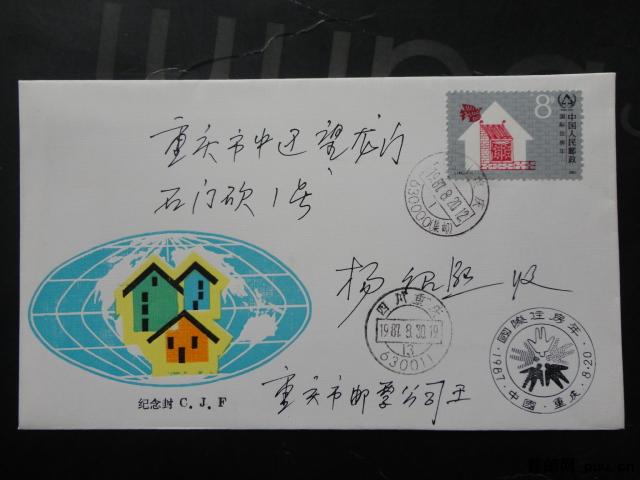 8
中国人民邮政
国际住房年
重庆市中区望龙门
石门砍1号
重庆
1987.8.20.12
1
(集邮)
630000
杨绍熙 收
四川重庆
1987.8.30.19
13
630011
國際住房年
·1987·中國·重庆·8·20·
纪念封 C.J.F
重庆市邮票公司王